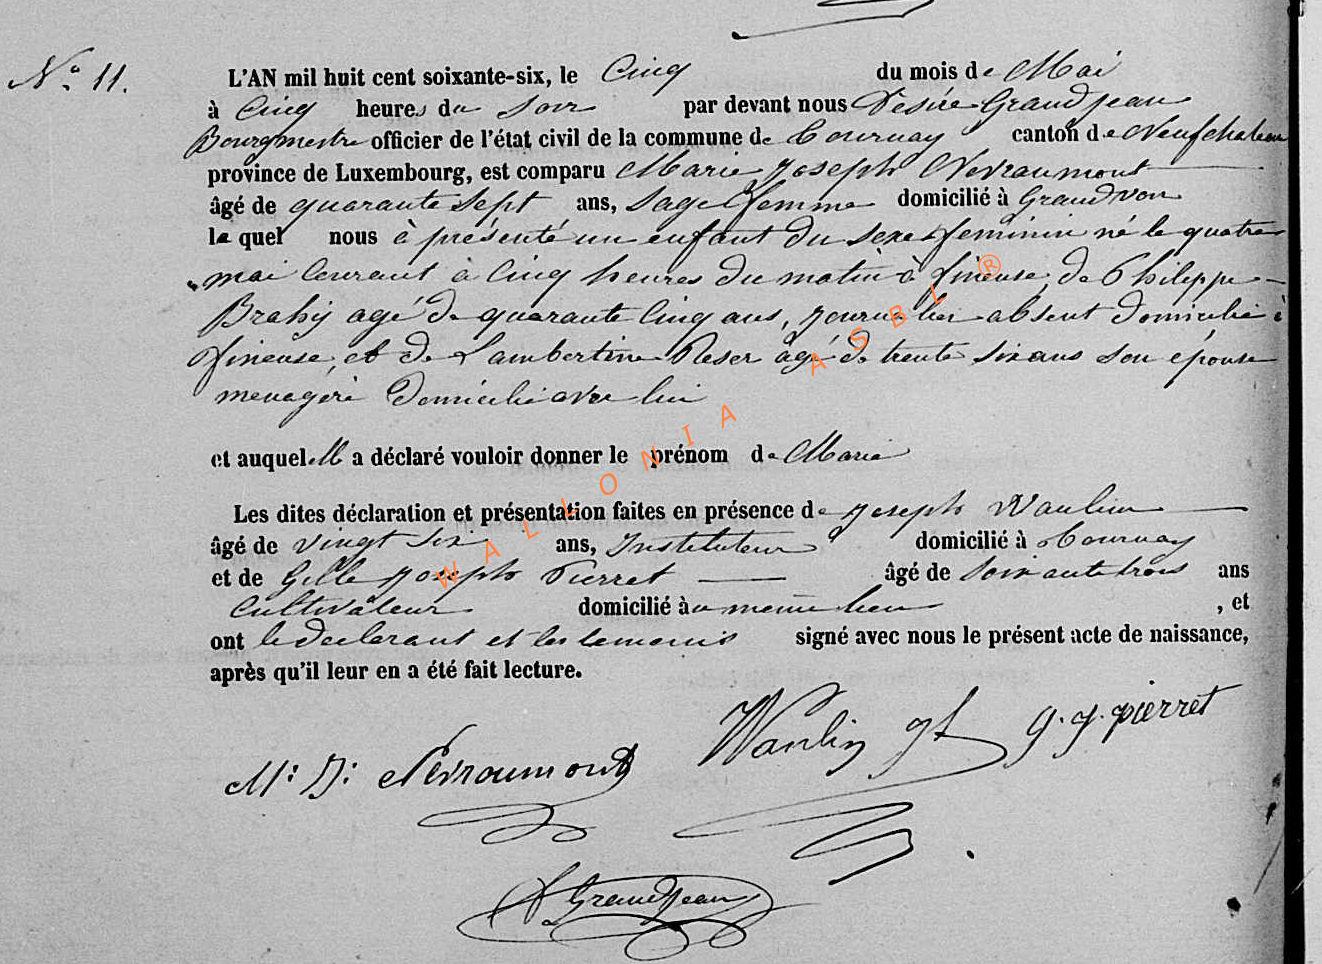 No. 11.
L'AN mil huit cent soixante-six, le Cinq du mois de Mai
à Cinq heures du Soir par devant nous Désiré Grandjean
Bourgmestre officier de l'état civil de la commune de Tournay canton de Neufchateau
province de Luxembourg, est comparu Marie Joseph Nevraumont
âgé de quarante sept ans, Sage femme domicilié à Grandvoir
lequel nous à présenté un enfant du sexe féminin né le quatre
mai Courant à Cinq heures du matin à fineuse, de Philippe
Brahy agé de quarante Cinq ans, journalier absent domicilié à
fineuse, et de Lambertine Reser âgé de trente six ans son épouse
menagère domicilié avec lui
et auquel a déclaré vouloir donner le prénom de Marie
Les dites déclaration et présentation faites en présence de Joseph Waulin
âgé de vingt six ans, Instituteur domicilié à Tournay
et de Gille Joseph Pierret âgé de soixante trois ans
Cultivateur domicilié au même lieu , et
ont le declarant et les temoins signé avec nous le présent acte de naissance,
après qu'il leur en a été fait lecture.
Waulin Jh G. J. pierret
M: J: Nevraumont
D Grandjean
WALLONIA ASBL ®